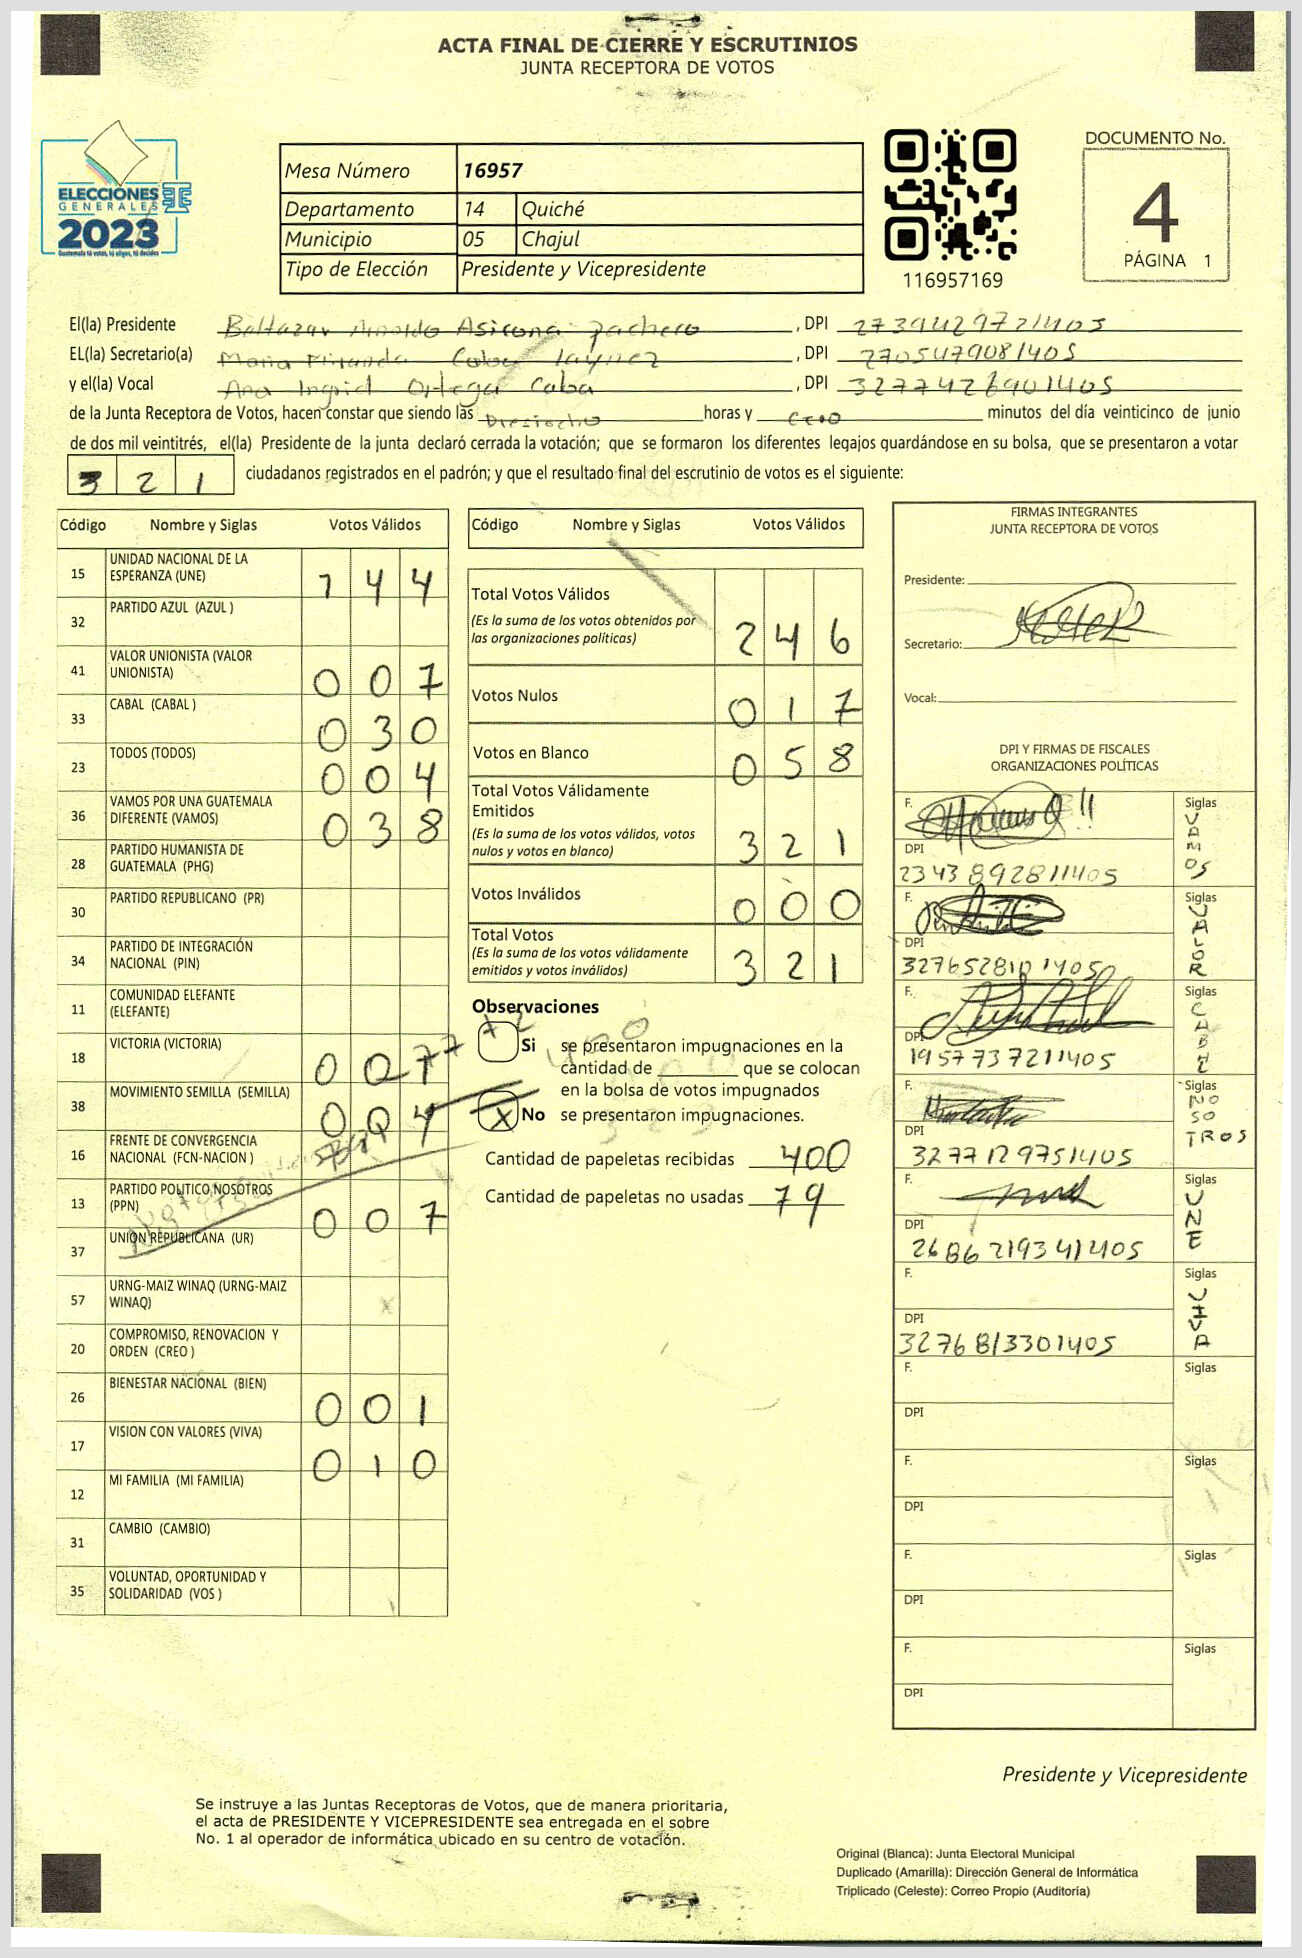 ACTA FINAL DE CIERRE Y ESCRUTINIOS
JUNTA RECEPTORA DE VOTOS
ELECCIONES
GENERALES
2023
Guatemala tú votas, tú eliges, tú decides
Mesa Número 16957
Departamento 14 Quiché
Municipio 05 Chajul
Tipo de Elección Presidente y Vicepresidente
116957169
DOCUMENTO No.
4
PÁGINA 1
El(la) Presidente Baltazar Arnoldo Asicona Pacheco, DPI 2739429721405
EL(la) Secretario(a) Maria Miranda Caba Laynez, DPI 2705479081405
y el(la) Vocal Ana Ingrid Ortega Caba, DPI 3277426901405
de la Junta Receptora de Votos, hacen constar que siendo las Dieciocho horas y cero minutos del día veinticinco de junio
de dos mil veintitrés, el(la) Presidente de la junta declaró cerrada la votación; que se formaron los diferentes legajos quardándose en su bolsa, que se presentaron a votar
321 ciudadanos registrados en el padrón; y que el resultado final del escrutinio de votos es el siguiente:
Código Nombre y Siglas Votos Válidos
15 UNIDAD NACIONAL DE LA ESPERANZA (UNE) 144
32 PARTIDO AZUL (AZUL )
41 VALOR UNIONISTA (VALOR UNIONISTA) 007
33 CABAL (CABAL ) 030
23 TODOS (TODOS) 004
36 VAMOS POR UNA GUATEMALA DIFERENTE (VAMOS) 038
28 PARTIDO HUMANISTA DE GUATEMALA (PHG)
30 PARTIDO REPUBLICANO (PR)
34 PARTIDO DE INTEGRACIÓN NACIONAL (PIN)
11 COMUNIDAD ELEFANTE (ELEFANTE)
18 VICTORIA (VICTORIA) 001
38 MOVIMIENTO SEMILLA (SEMILLA) 004
16 FRENTE DE CONVERGENCIA NACIONAL (FCN-NACION )
13 PARTIDO POLITICO NOSOTROS (PPN) 007
37 UNION REPUBLICANA (UR)
57 URNG-MAIZ WINAQ (URNG-MAIZ WINAQ)
20 COMPROMISO, RENOVACION Y ORDEN (CREO )
26 BIENESTAR NACIONAL (BIEN) 001
17 VISION CON VALORES (VIVA) 010
12 MI FAMILIA (MI FAMILIA)
31 CAMBIO (CAMBIO)
35 VOLUNTAD, OPORTUNIDAD Y SOLIDARIDAD (VOS )
Código Nombre y Siglas Votos Válidos
Total Votos Válidos 246
(Es la suma de los votos obtenidos por
las organizaciones políticas)
Votos Nulos 017
Votos en Blanco 058
Total Votos Válidamente
Emitidos
(Es la suma de los votos válidos, votos
nulos y votos en blanco) 321
Votos Inválidos 000
Total Votos
(Es la suma de los votos válidamente
emitidos y votos inválidos) 321
Observaciones
Si se presentaron impugnaciones en la
cantidad de ________ que se colocan
en la bolsa de votos impugnados
X No se presentaron impugnaciones.
Cantidad de papeletas recibidas 400
Cantidad de papeletas no usadas 79
FIRMAS INTEGRANTES
JUNTA RECEPTORA DE VOTOS
Presidente:
Secretario:
Vocal:
DPI Y FIRMAS DE FISCALES
ORGANIZACIONES POLÍTICAS
F. Siglas VAMOS
DPI 2343892811405
F. Siglas VALOR
DPI 3276528101405
F. Siglas CABAL
DPI 1957737211405
F. Siglas NOSOTROS
DPI 3277129751405
F. Siglas UNE
DPI 2686219341405
F. Siglas VIVA
DPI 3276813301405
F. Siglas
DPI
F. Siglas
DPI
F. Siglas
DPI
F. Siglas
DPI
Presidente y Vicepresidente
Se instruye a las Juntas Receptoras de Votos, que de manera prioritaria,
el acta de PRESIDENTE Y VICEPRESIDENTE sea entregada en el sobre
No. 1 al operador de informática ubicado en su centro de votación.
Original (Blanca): Junta Electoral Municipal
Duplicado (Amarilla): Dirección General de Informática
Triplicado (Celeste): Correo Propio (Auditoría)